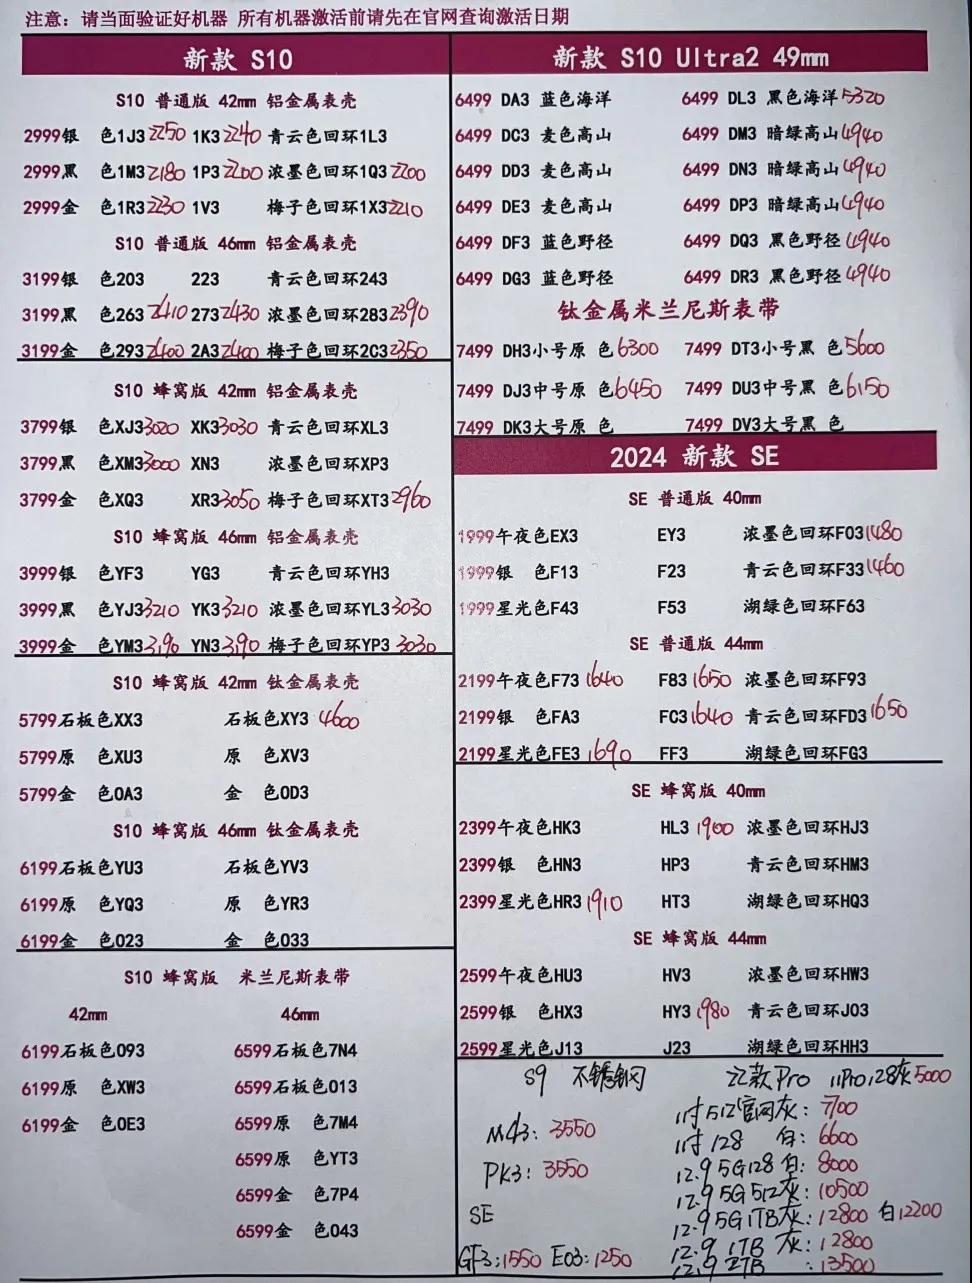 注意：请当面验证好机器 所有机器激活前请先在官网查询激活日期
新款 S10
S10 普通版 42mm 铝金属表壳
2999银 色1J3 2250 1K3 2240 青云色回环1L3
2999黑 色1M3 2180 1P3 2200 浓墨色回环1Q3 2200
2999金 色1R3 2230 1V3 梅子色回环1X3 2210
S10 普通版 46mm 铝金属表壳
3199银 色203 223 青云色回环243
3199黑 色263 2410 273 2430 浓墨色回环283 2390
3199金 色293 2400 2A3 2400 梅子色回环2C3 2350
S10 蜂窝版 42mm 铝金属表壳
3799银 色XJ3 3020 XK3 3030 青云色回环XL3
3799黑 色XM3 3000 XN3 浓墨色回环XP3
3799金 色XQ3 XR3 3050 梅子色回环XT3 2960
S10 蜂窝版 46mm 铝金属表壳
3999银 色YF3 YG3 青云色回环YH3
3999黑 色YJ3 3210 YK3 3210 浓墨色回环YL3 3030
3999金 色YM3 3190 YN3 3190 梅子色回环YP3 3030
S10 蜂窝版 42mm 钛金属表壳
5799石板色XX3 石板色XY3 4600
5799原 色XU3 原 色XV3
5799金 色0A3 金 色0D3
S10 蜂窝版 46mm 钛金属表壳
6199石板色YU3 石板色YV3
6199原 色YQ3 原 色YR3
6199金 色023 金 色033
S10 蜂窝版 米兰尼斯表带
42mm 46mm
6199石板色093 6599石板色7N4
6199原 色XW3 6599石板色013
6199金 色0E3 6599原 色7M4
6599原 色YT3
6599金 色7P4
6599金 色043
新款 S10 Ultra2 49mm
6499 DA3 蓝色海洋 6499 DL3 黑色海洋 5320
6499 DC3 麦色高山 6499 DM3 暗绿高山 4940
6499 DD3 麦色高山 6499 DN3 暗绿高山 4940
6499 DE3 麦色高山 6499 DP3 暗绿高山 4940
6499 DF3 蓝色野径 6499 DQ3 黑色野径 4940
6499 DG3 蓝色野径 6499 DR3 黑色野径 4940
钛金属米兰尼斯表带
7499 DH3小号原 色 6300 7499 DT3小号黑 色 5600
7499 DJ3中号原 色 6450 7499 DU3中号黑 色 6150
7499 DK3大号原 色 7499 DV3大号黑 色
2024 新款 SE
SE 普通版 40mm
1999午夜色EX3 EY3 浓墨色回环F03 1480
1999银 色F13 F23 青云色回环F33 1460
1999星光色F43 F53 湖绿色回环F63
SE 普通版 44mm
2199午夜色F73 1640 F83 1650 浓墨色回环F93
2199银 色FA3 FC3 1640 青云色回环FD3 1650
2199星光色FE3 1690 FF3 湖绿色回环FG3
SE 蜂窝版 40mm
2399午夜色HK3 HL3 1900 浓墨色回环HJ3
2399银 色HN3 HP3 青云色回环HM3
2399星光色HR3 1910 HT3 湖绿色回环HQ3
SE 蜂窝版 44mm
2599午夜色HU3 HV3 浓墨色回环HW3
2599银 色HX3 HY3 1980 青云色回环J03
2599星光色J13 J23 湖绿色回环HH3
S9 不锈钢
M43: 3550
PK3: 3550
SE
GF3: 1550 E03: 1250
22款Pro 11Pro128灰 5000
11寸512官网灰: 7100
11寸 128 白: 6600
12.9 5G128 白: 8000
12.9 5G 512灰: 10500
12.9 5G 1TB灰: 12800 白12200
12.9 1TB 灰: 12800
12.9 2TB : 13500